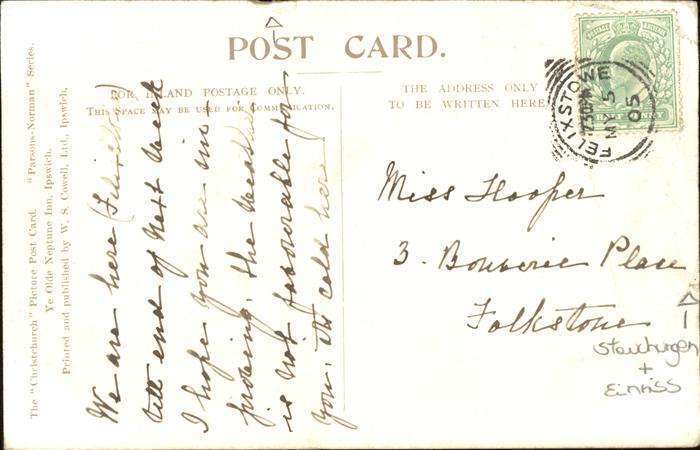 POST CARD.
FOR INLAND POSTAGE ONLY.
THIS SPACE MAY BE USED FOR COMMUNICATION.
THE ADDRESS ONLY
TO BE WRITTEN HERE
FELIXSTOWE
MY 5
05
The "Christchurch" Picture Post Card. "Parsons-Norman" Series.
Ye Olde Neptune Inn, Ipswich.
Printed and published by W. S. Cowell, Ltd., Ipswich.
We are here (Felixstowe)
till end of next week
I hope you are im-
proving. The weather
is not favourable for
you. It's cold here
Miss Hooper
3. Bouverie Place
Folkstone
+
Einriss